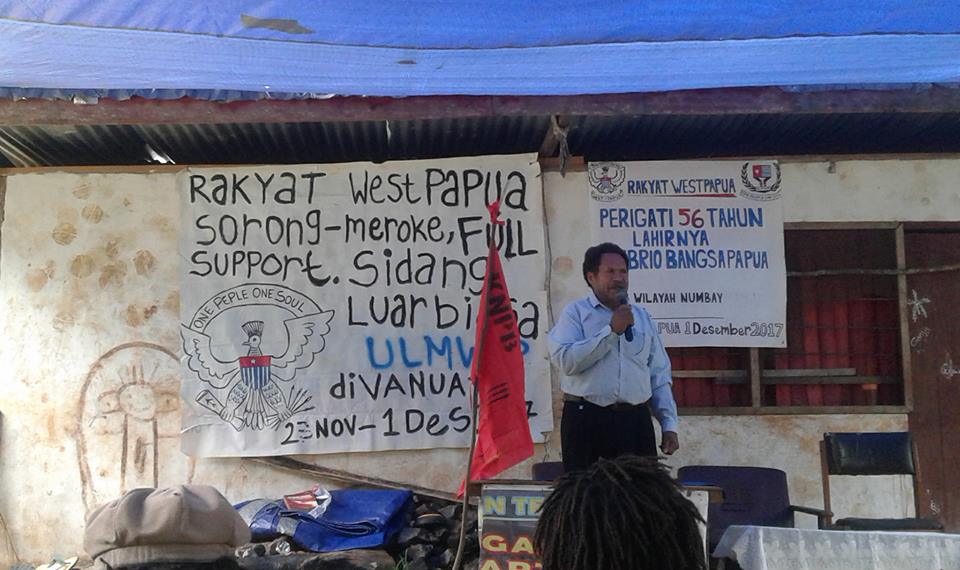 RAKYAT WESTPAPUA
SORONG-MEROKE, FULL
SUPPORT. Sidang
LUAR
ONE PEPLE ONE SOUL
ULMWP
diVANUA
NOV-1DeS
KNPB
RAKYAT WESTPAPUA
PERIGATI 56 TAHUN
LAHIRNYA
BRIO BANGSAPAPUA
WILAYAH NUMBAY
PUA 1Desember2017
N TE
GA
ART